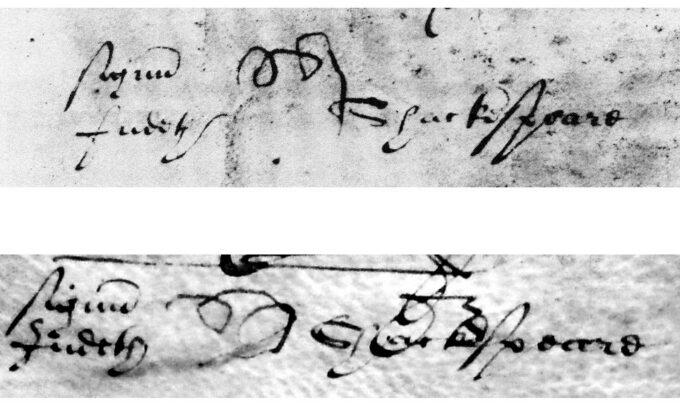 signum
Judeth Shackespeare
signum
Judeth Shackespeare